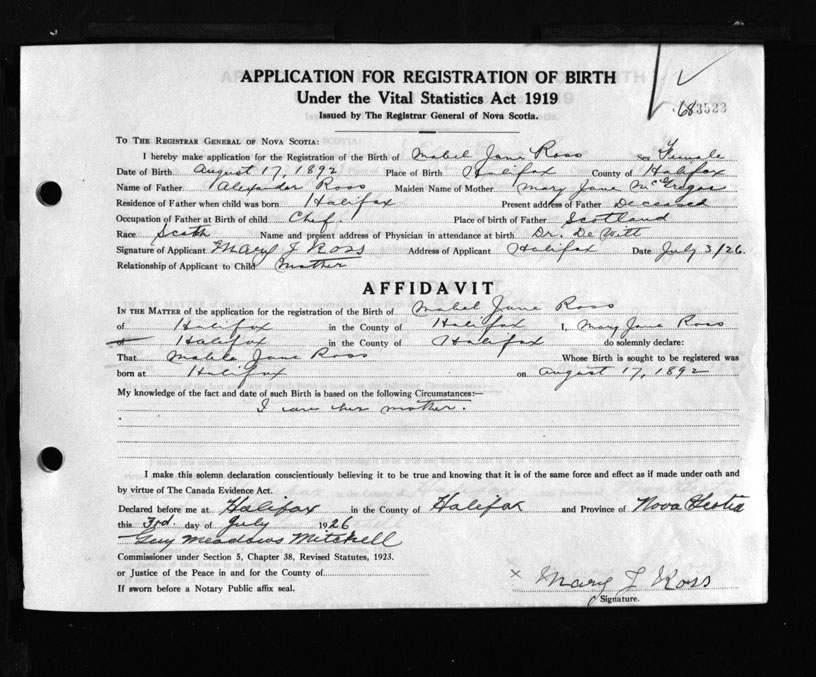 APPLICATION FOR REGISTRATION OF BIRTH
Under the Vital Statistics Act 1919
Issued by The Registrar General of Nova Scotia.
683523
TO THE REGISTRAR GENERAL OF NOVA SCOTIA:
I hereby make application for the Registration of the Birth of Mabel Jane Ross Sex Female
Date of Birth August 17, 1892 Place of Birth Halifax County of Halifax
Name of Father Alexander Ross Maiden Name of Mother Mary Jane McGregor
Residence of Father when child was born Halifax Present address of Father Deceased
Occupation of Father at Birth of child Chef. Place of birth of Father Scotland
Race Scotch Name and present address of Physician in attendance at birth Dr. De Witt
Signature of Applicant Mary J Ross Address of Applicant Halifax Date July 3/26.
Relationship of Applicant to Child Mother
AFFIDAVIT
IN THE MATTER of the application for the registration of the Birth of Mabel Jane Ross
of Halifax in the County of Halifax I, Mary Jane Ross
of Halifax in the County of Halifax do solemnly declare:
That Mabel Jane Ross Whose Birth is sought to be registered was
born at Halifax on August 17, 1892
My knowledge of the fact and date of such Birth is based on the following Circumstances:—
I am her mother.
I make this solemn declaration conscientiously believing it to be true and knowing that it is of the same force and effect as if made under oath and
by virtue of The Canada Evidence Act.
Declared before me at Halifax in the County of Halifax and Province of Nova Scotia
this 3rd. day of July 1926
Guy Meadows Mitchell
Commissioner under Section 5, Chapter 38, Revised Statutes, 1923.
or Justice of the Peace in and for the County of
If sworn before a Notary Public affix seal.
x Mary J Ross
Signature.